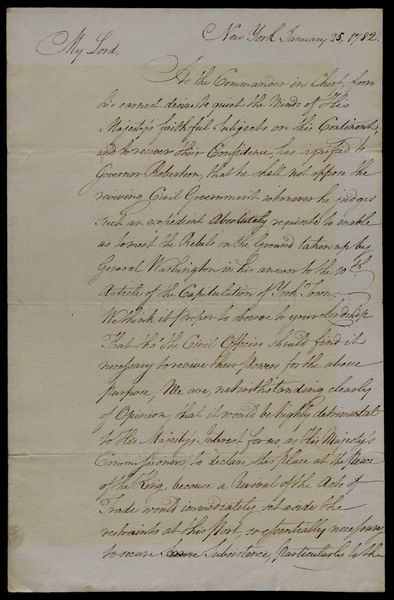 New York January 25, 1782.
My Lord,
As the Commander in Chief, from
his earnest desire to quiet the Minds of His
Majesty's faithful Subjects on this Continent,
and to recover their Confidence, has signified to
Governor Robertson, that he shall not oppose the
reviving Civil Government whenever he judges
such an expedient Absolutely requisite to enable
us to meet the Rebels on the Ground taken up by
General Washington in his answer to the 10th
Article of the Capitulation of York Town.
We think it proper to observe to your Lordship
That tho' the Civil Officers should find it
necessary to revive their Powers for the above
purpose, We are, notwithstanding clearly
of Opinion, that it would be highly detrimental
to His Majesty's Interest for us, as His Majesty's
Commissioners, to declare this Place at the Peace
of the King, because a Revival of the Acts of
Trade would immediately set aside the
restraints at this Port, so essentially necessary
to secure Subsistence, particularly to the